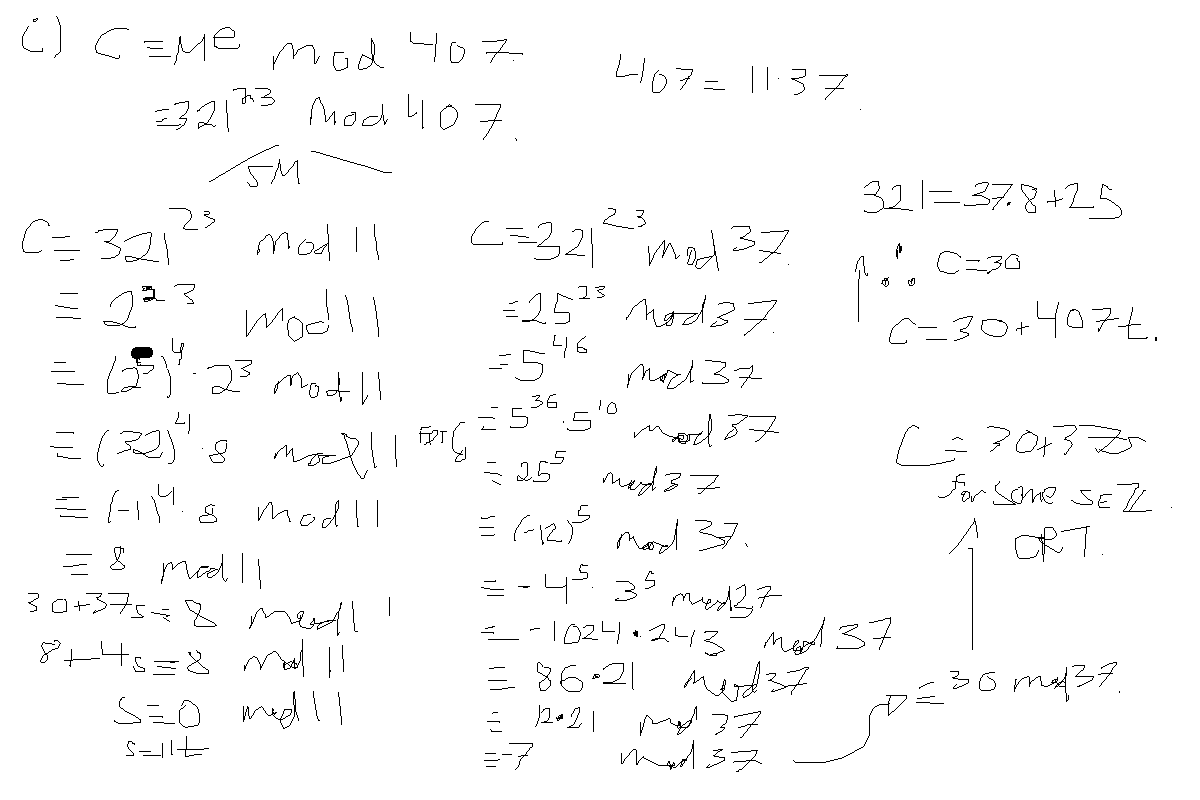 i) C ≡ M^e mod 407.
≡ 321^23 mod 407.
407 = 11·37.
SM
C ≡ 321^23 mod 11
≡ 2^23 mod 11
≡ (2^5)^4 · 2^3 mod 11
≡ (32)^4 · 8 mod 11
≡ (-1)^4 · 8 mod 11
≡ 8 mod 11
30+37s ≡ 8 mod 11
8+4s ≡ 8 mod 11
s ≡ 0 mod 11
s=11t
C ≡ 321^23 mod 37.
≡ 25^23 mod 37.
≡ 5^46 mod 37
≡ 5^36 · 5^10 mod 37
≡ 25^5 mod 37
≡ (-12)^5 mod 37.
≡ -4^5 · 3^5 mod 37
≡ -1024 · 243 mod 37
≡ 86·21 mod 37
≡ 12·21 mod 37
≡ -7 mod 37
≡ 30 mod 37.
321 = 37.8+25
∴ C=30
C = 30+407t.
C = 30+37s
for some s∈ℤ.
CRT.